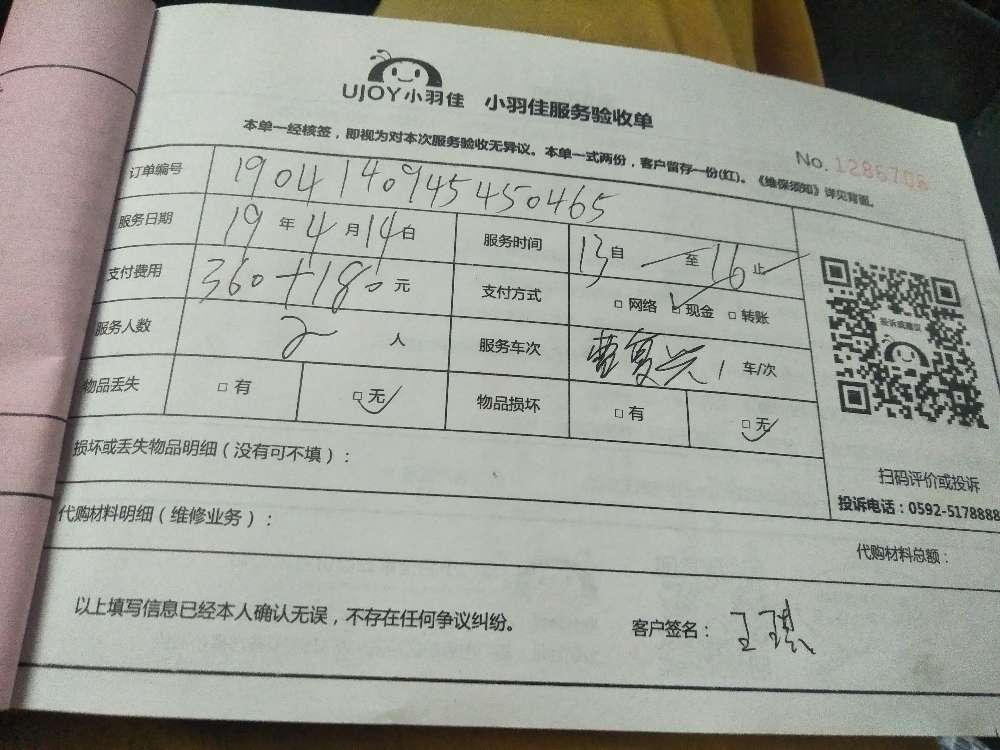 UJOY小羽佳 小羽佳服务验收单
本单一经核签，即视为对本次服务验收无异议。本单一式两份，客户留存一份(红)。《维保须知》详见背面。
No.
订单编号 190414094545​0465
服务日期 19年4月14日 服务时间 13自 至16止
支付费用 360+180元 支付方式 □网络 □现金 □转账
服务人数 2人 服务车次 曹复兴 1车/次
物品丢失 □有 □无 物品损坏 □有 □无
损坏或丢失物品明细（没有可不填）：
扫码评价或投诉
投诉电话：0592-5178888
代购材料明细（维修业务）：
代购材料总额：
以上填写信息已经本人确认无误，不存在任何争议纠纷。
客户签名：